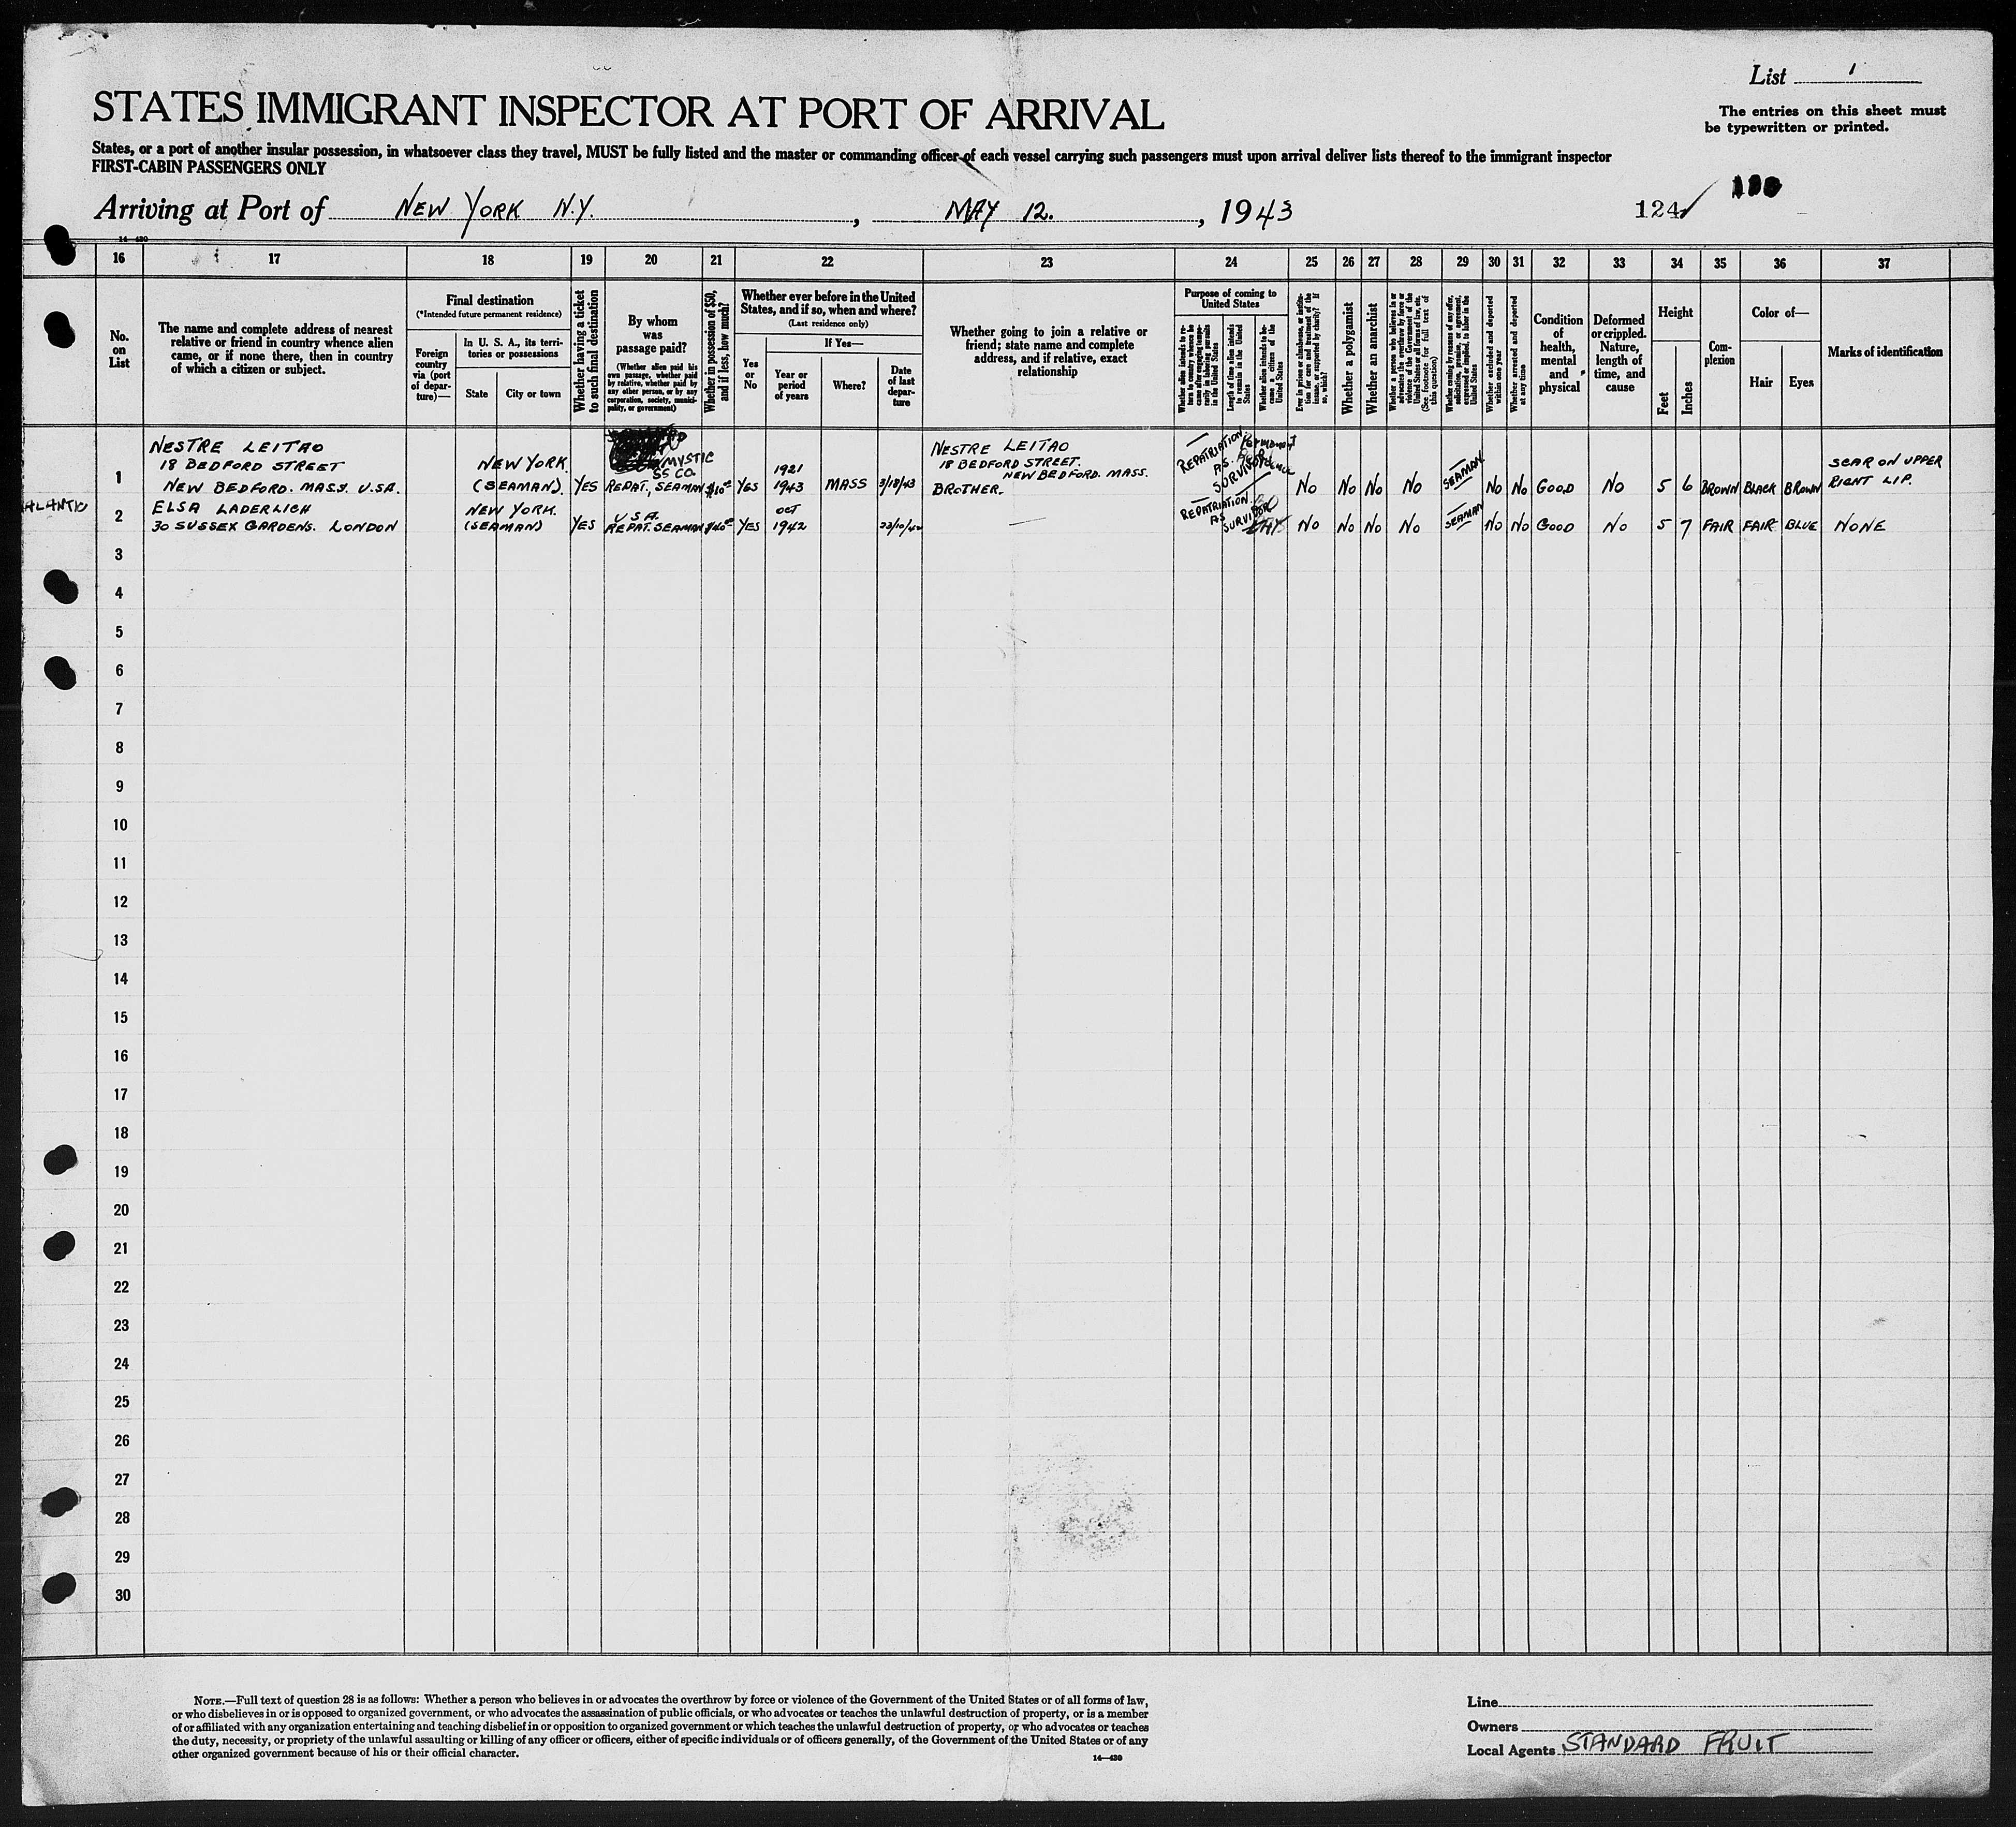 List 1
STATES IMMIGRANT INSPECTOR AT PORT OF ARRIVAL
The entries on this sheet must
be typewritten or printed.
States, or a port of another insular possession, in whatsoever class they travel, MUST be fully listed and the master or commanding officer of each vessel carrying such passengers must upon arrival deliver lists thereof to the immigrant inspector
FIRST-CABIN PASSENGERS ONLY
Arriving at Port of NEW YORK N.Y., MAY 12., 1943
124
14-430
16 17 18 19 20 21 22 23 24 25 26 27 28 29 30 31 32 33 34 35 36 37
No. on List
The name and complete address of nearest
relative or friend in country whence alien
came, or if none there, then in country
of which a citizen or subject.
Final destination
(*Intended future permanent residence)
Foreign
country
via (port
of depar-
ture)—
In U. S. A., its terri-
tories or possessions
State
City or town
Whether having a ticket
to such final destination
By whom
was
passage paid?
(Whether alien paid his
own passage, whether paid
by relative, whether paid by
any other person, or by any
corporation, society, munici-
pality, or government)
Whether in possession of $50,
and if less, how much?
Whether ever before in the United
States, and if so, when and where?
(Last residence only)
Yes
or
No
If Yes—
Year or
period
of years
Where?
Date
of last
depar-
ture
Whether going to join a relative or
friend; state name and complete
address, and if relative, exact
relationship
Purpose of coming to
United States
Whether alien intends to re-
turn to country whence he
came after engaging tempo-
rarily in laboring pursuits
in the United States
Length of time alien intends
to remain in the United
States
Whether alien intends to be-
come a citizen of the
United States
Ever in prison or almshouse, or institu-
tion for care and treatment of the
insane, or supported by charity? If
so, which?
Whether a polygamist
Whether an anarchist
Whether a person who believes in or
advocates the overthrow by force or
violence of the Government of the
United States or all forms of law, etc.
(See footnote for full text of
this question)
Whether coming by reasons of any offer,
solicitation, promise, or agreement,
expressed or implied, to labor in the
United States
Whether excluded and deported
within one year
Whether arrested and deported
at any time
Condition
of
health,
mental
and
physical
Deformed
or crippled.
Nature,
length of
time, and
cause
Height
Feet
Inches
Com-
plexion
Color of—
Hair
Eyes
Marks of identification
1
NESTRE LEITAO
18 BEDFORD STREET
NEW BEDFORD. MASS. U.S.A.
NEW YORK
(SEAMAN)
YES
MYSTIC
SS CO.
REPAT, SEAMAN
YES
1921
1943
MASS
3/18/43
NESTRE LEITAO
18 BEDFORD STREET.
NEW BEDFORD. MASS.
BROTHER.
REPATRIATION
AS
SURVIVOR
NO NO NO NO SEAMAN NO NO GOOD NO 5 6 BROWN BLACK BROWN
SCAR ON UPPER
RIGHT LIP.
2
ELSA LADERLICH
30 SUSSEX GARDENS. LONDON
NEW YORK.
(SEAMAN)
YES
U S A.
REPAT. SEAMAN
YES
OCT
1942
REPATRIATION
AS
SURVIVOR
NO NO NO NO SEAMAN NO NO GOOD NO 5 7 FAIR FAIR BLUE NONE
3
4
5
6
7
8
9
10
11
12
13
14
15
16
17
18
19
20
21
22
23
24
25
26
27
28
29
30
NOTE.—Full text of question 28 is as follows: Whether a person who believes in or advocates the overthrow by force or violence of the Government of the United States or of all forms of law,
or who disbelieves in or is opposed to organized government, or who advocates the assassination of public officials, or who advocates or teaches the unlawful destruction of property, or is a member
of or affiliated with any organization entertaining and teaching disbelief in or opposition to organized government or which teaches the unlawful destruction of property, or who advocates or teaches
the duty, necessity, or propriety of the unlawful assaulting or killing of any officer or officers, either of specific individuals or of officers generally, of the Government of the United States or of any
other organized government because of his or their official character.
14—430
Line
Owners
Local Agents STANDARD FRUIT